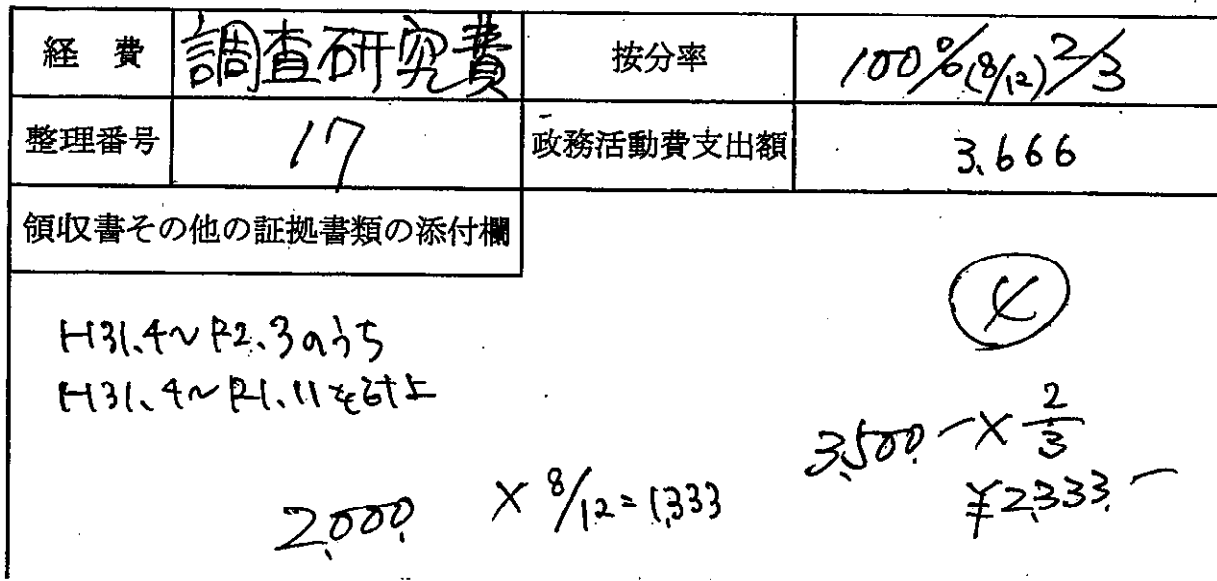 経費 調査研究費 按分率 100%(8/12) 2/3
整理番号 17 政務活動費支出額 3,666
領収書その他の証拠書類の添付欄
H31.4～R2.3のうち
H31.4～R1.11を計上
3,500ー×2/3
2,000 ×8/12=1,333
¥2,333.ー